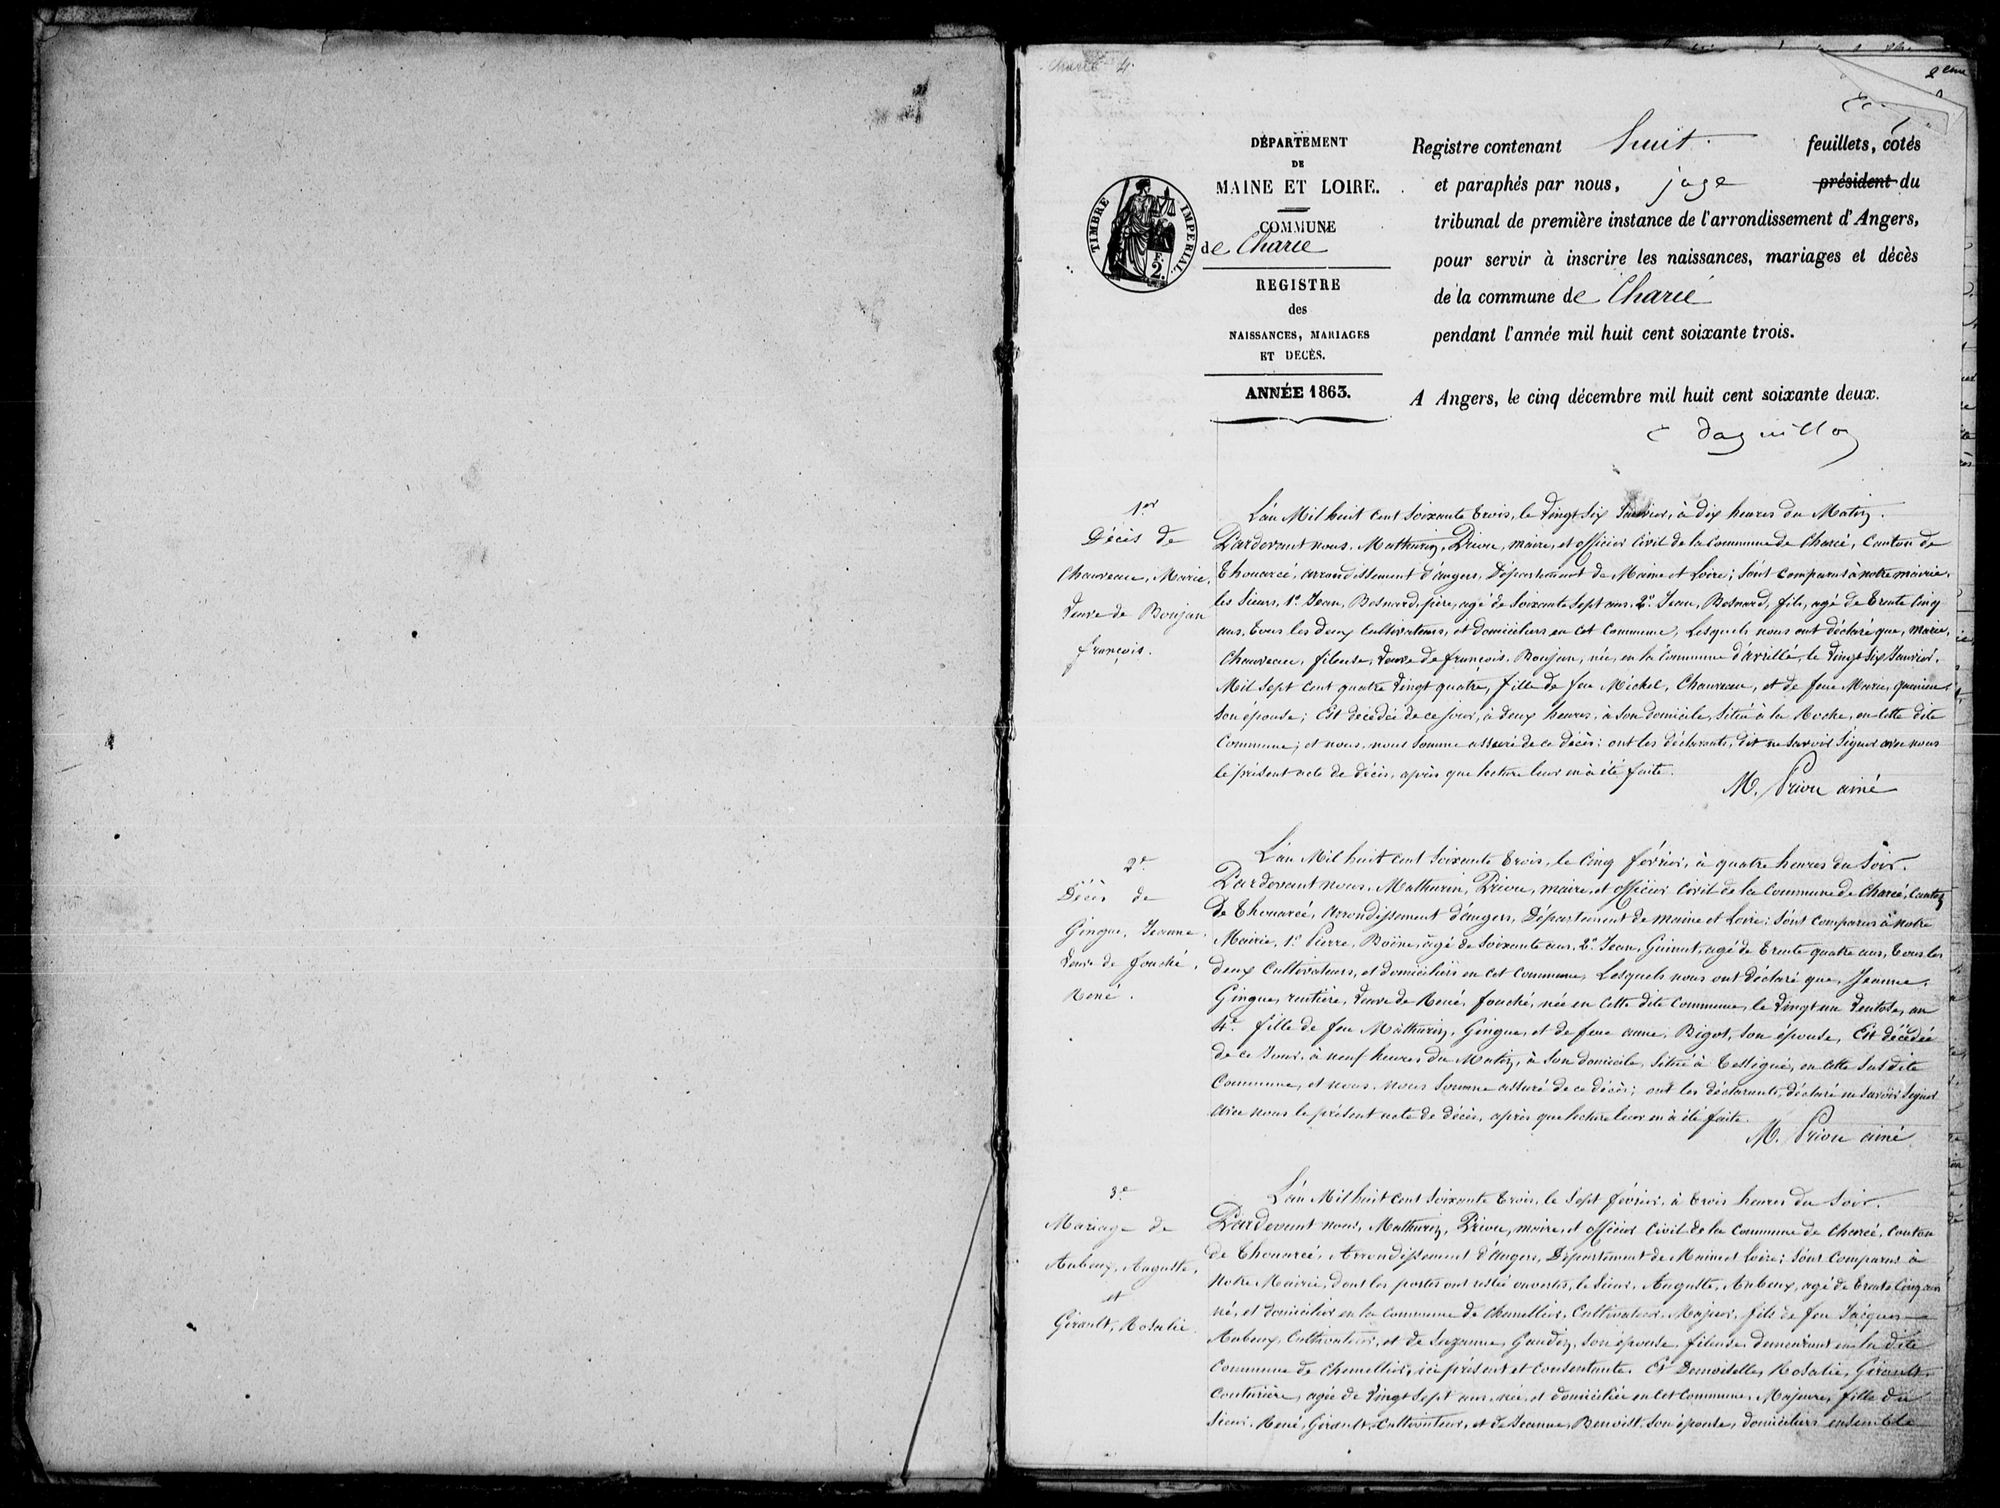 Charcé 4
2eme
DÉPARTEMENT
DE
MAINE ET LOIRE.
COMMUNE
de Charcé
REGISTRE
des
NAISSANCES, MARIAGES
ET DECÈS.
ANNÉE 1863.
TIMBRE IMPERIAL.
F
2.
Registre contenant huit feuillets, cótés
et paraphés par nous, juge président du
tribunal de première instance de l'arrondissement d'Angers,
pour servir à inscrire les naissances, mariages et décès
de la commune de Charcé
pendant l'année mil huit cent soixante trois.
A Angers, le cinq décembre mil huit cent soixante deux.
Daguillon
1er
Décès de
Chauveau, Marie,
Veuve de Boujau
françois.
L'an Mil huit cent Soixante trois, le Vingt Six Janvier, à dix heures du Matin.
Pardevant nous, Mathurin, Priou, maire, et officier Civil de la Commune de Charcé, Canton de
Thouarcé, arrondissement d'angers, Département de Maine et Loire; Sont comparus à notre mairie,
les Sieurs, 1º Jean, Besnard, père, agé de Soixante Sept ans, 2º Jean, Besnard, fils, agé de trente Cinq
ans, tous les deux Cultivateurs, et domiciliers en cet Commune, Lesquels nous ont déclaré que, Marie,
Chauveau, fileuse, Veuve de françois, Boujau, née, en la Commune d'avrillé, le Vingt Six Janvier,
Mil Sept cent quatre Vingt quatre, fille de feu Michel, Chauveau, et de feue Marie,
Son épouse; Est décédée de ce jour, à deux heures, à Son domicile, Situé à la Roche, en Cette dite
Commune; et nous, nous Somme assuré de ce décès: ont les déclarants, dit ne Savoir Signer avec nous
le présent acte de décès, après que lecture leur en à été faite.
M. Priou ainé
2e
Décès de
Gingue, Jeanne,
Veuve de fouché,
René.
L'an Mil huit cent Soixante trois, le Cinq février, à quatre heures du Soir.
Pardevant nous, Mathurin, Priou, maire, et officier Civil de la Commune de Charcé, Canton
de Thouarcé, Arrondissement d'angers, Département de maine et Loire; Sont Comparus à notre
Mairie, 1º Pierre, Boëne, agé de Soixante ans, 2º Jean, Guinut, agé de trente quatre ans, tous les
deux Cultivateurs, et domiciliés en cet commune, Lesquels nous ont déclaré que, Jeanne,
Gingue, rentière, Veuve de René, fouché, née en Cette dite Commune, le Vingt un Ventose, an
4e, fille de feu Mathurin, Gingue, et de feue anne, Bigot, Son épouse, Est décédée
de ce Jour, à neuf heures du Matin, à Son domicile, Situé à Tessigné, en Cette Susdite
Commune, et nous, nous Somme assuré de ce décès; ont les déclarants, déclaré ne Savoir Signer
avec nous le présent acte de décès, après que lecture leur en à été faite.
M. Priou ainé
3e
Mariage de
Aubeux, Auguste,
et
Girault, Rosalie
L'an Mil huit cent Soixante trois, le Sept février, à trois heures du Soir.
Pardevant nous, Mathurin, Priou, maire, et officier Civil de la Commune de Charcé, Canton
de Thouarcé, Arrondissement d'Angers, Département de Maine et Loire; Sont Comparus à
notre Mairie, dont les portes ont restée ouvertes, le Sieur, Auguste, Aubeux, agé de trente Cinq ans
né, et domicilier en la Commune de Chemellier, Cultivateur, Majeur, fils de feu Jacques
Aubeux, Cultivateur, et de Suzanne, Gaudin, Son épouse, fileuse, demeurant en la dite
Commune de Chemellier, ici présent et Consentante. Et Demoiselle, Rosalie, Girault,
Couturière, agée de Vingt Sept ans, née, et domiciliée en cet Commune, Majeure, fille du
Sieur, René, Girault, Cultivateur, et de Jeanne, Benoist, Son épouse, domiciliers ensemble